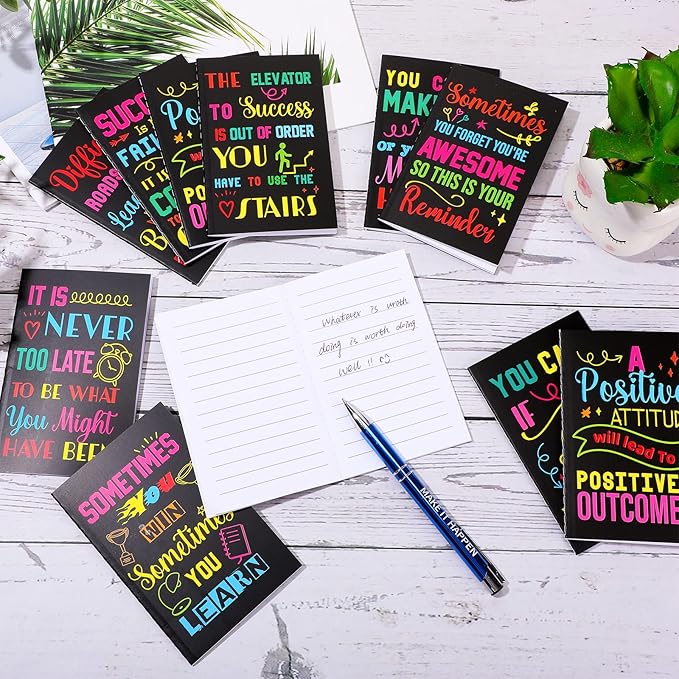 Diffi
ROADS
Lea
B
SUCC
IS
FAI
IT IS
CO
TO
Po
will
POS
OUT
THE ELEVATOR
TO Success
IS OUT OF ORDER
YOU
HAVE TO USE THE
STAIRS
YOU C
MAK
or y
M
H
Sometimes
YOU FORGET YOU'RE
AWESOME
SO THIS IS YOUR
Reminder
IT IS
NEVER
TOO LATE
TO BE WHAT
You Might
HAVE BEEN
Whatever is worth
doing is worth doing
well !!
MAKE IT HAPPEN
SOMETIMES
YOU
WIN
Sometimes
YOU
LEARN
YOU CA
IF
A
Positive
ATTITUD
will lead To
POSITIVE
OUTCOME